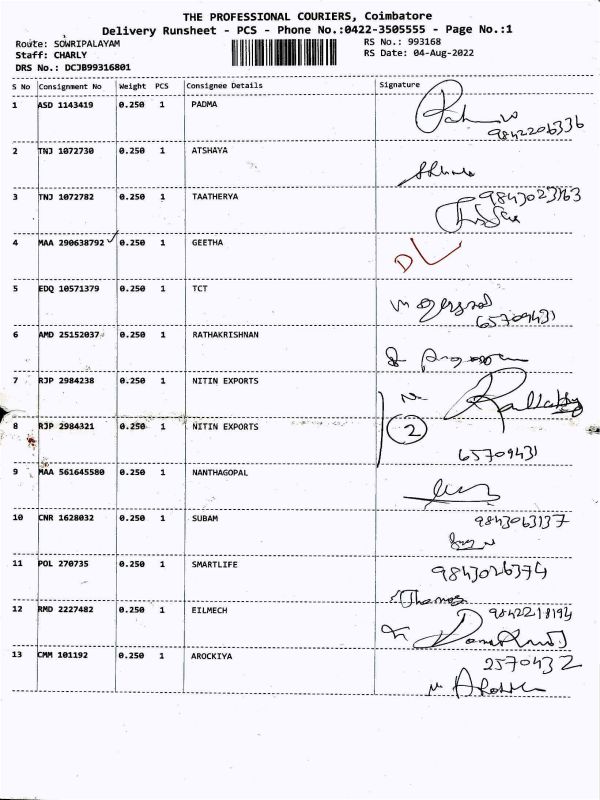 THE PROFESSIONAL COURIERS, Coimbatore
Delivery Runsheet - PCS - Phone No.:0422-3505555 - Page No.:1
Route: SOWRIPALAYAM RS No.: 993168
Staff: CHARLY RS Date: 04-Aug-2022
DRS No.: DCJB99316801
S No Consignment No Weight PCS Consignee Details Signature
1 ASD 1143419 0.250 1 PADMA
9842206336
2 TNJ 1072730 0.250 1 ATSHAYA
3 TNJ 1072782 0.250 1 TAATHERYA 9843023163
4 MAA 290638792 0.250 1 GEETHA DL
5 EDQ 10571379 0.250 1 TCT
65709431
6 AMD 25152037 0.250 1 RATHAKRISHNAN
7 RJP 2984238 0.250 1 NITIN EXPORTS
8 RJP 2984321 0.250 1 NITIN EXPORTS 2
65709431
9 MAA 561645580 0.250 1 NANTHAGOPAL
10 CNR 1628032 0.250 1 SUBAM 9843063137
11 POL 270735 0.250 1 SMARTLIFE 9843026374
Thomas
12 RMD 2227482 0.250 1 EILMECH 9842218194
13 CMM 101192 0.250 1 AROCKIYA 2570432